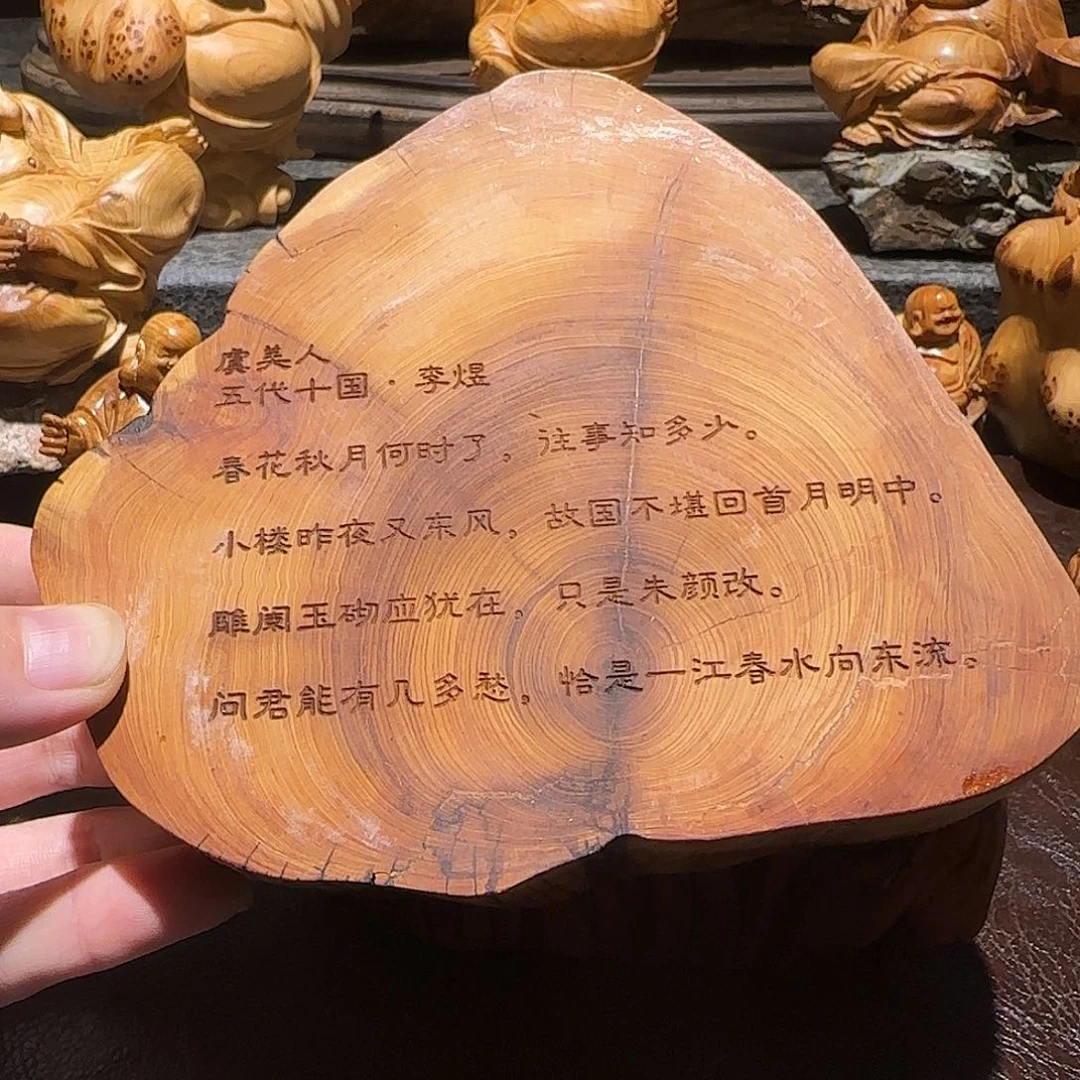 虞美人
五代十国·李煜
春花秋月何时了，往事知多少。
小楼昨夜又东风，故国不堪回首月明中。
雕阑玉砌应犹在，只是朱颜改。
问君能有几多愁，恰是一江春水向东流。